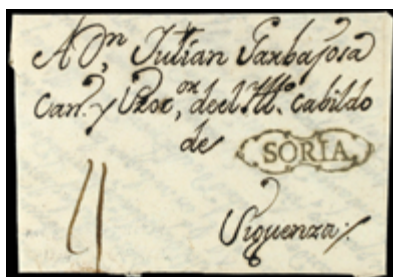 A Dⁿ, Julian Garbajosa
Canº. y Prorᵒʳ, de el Illᵐᵒ. cabildo
de
SORIA
Siguenza